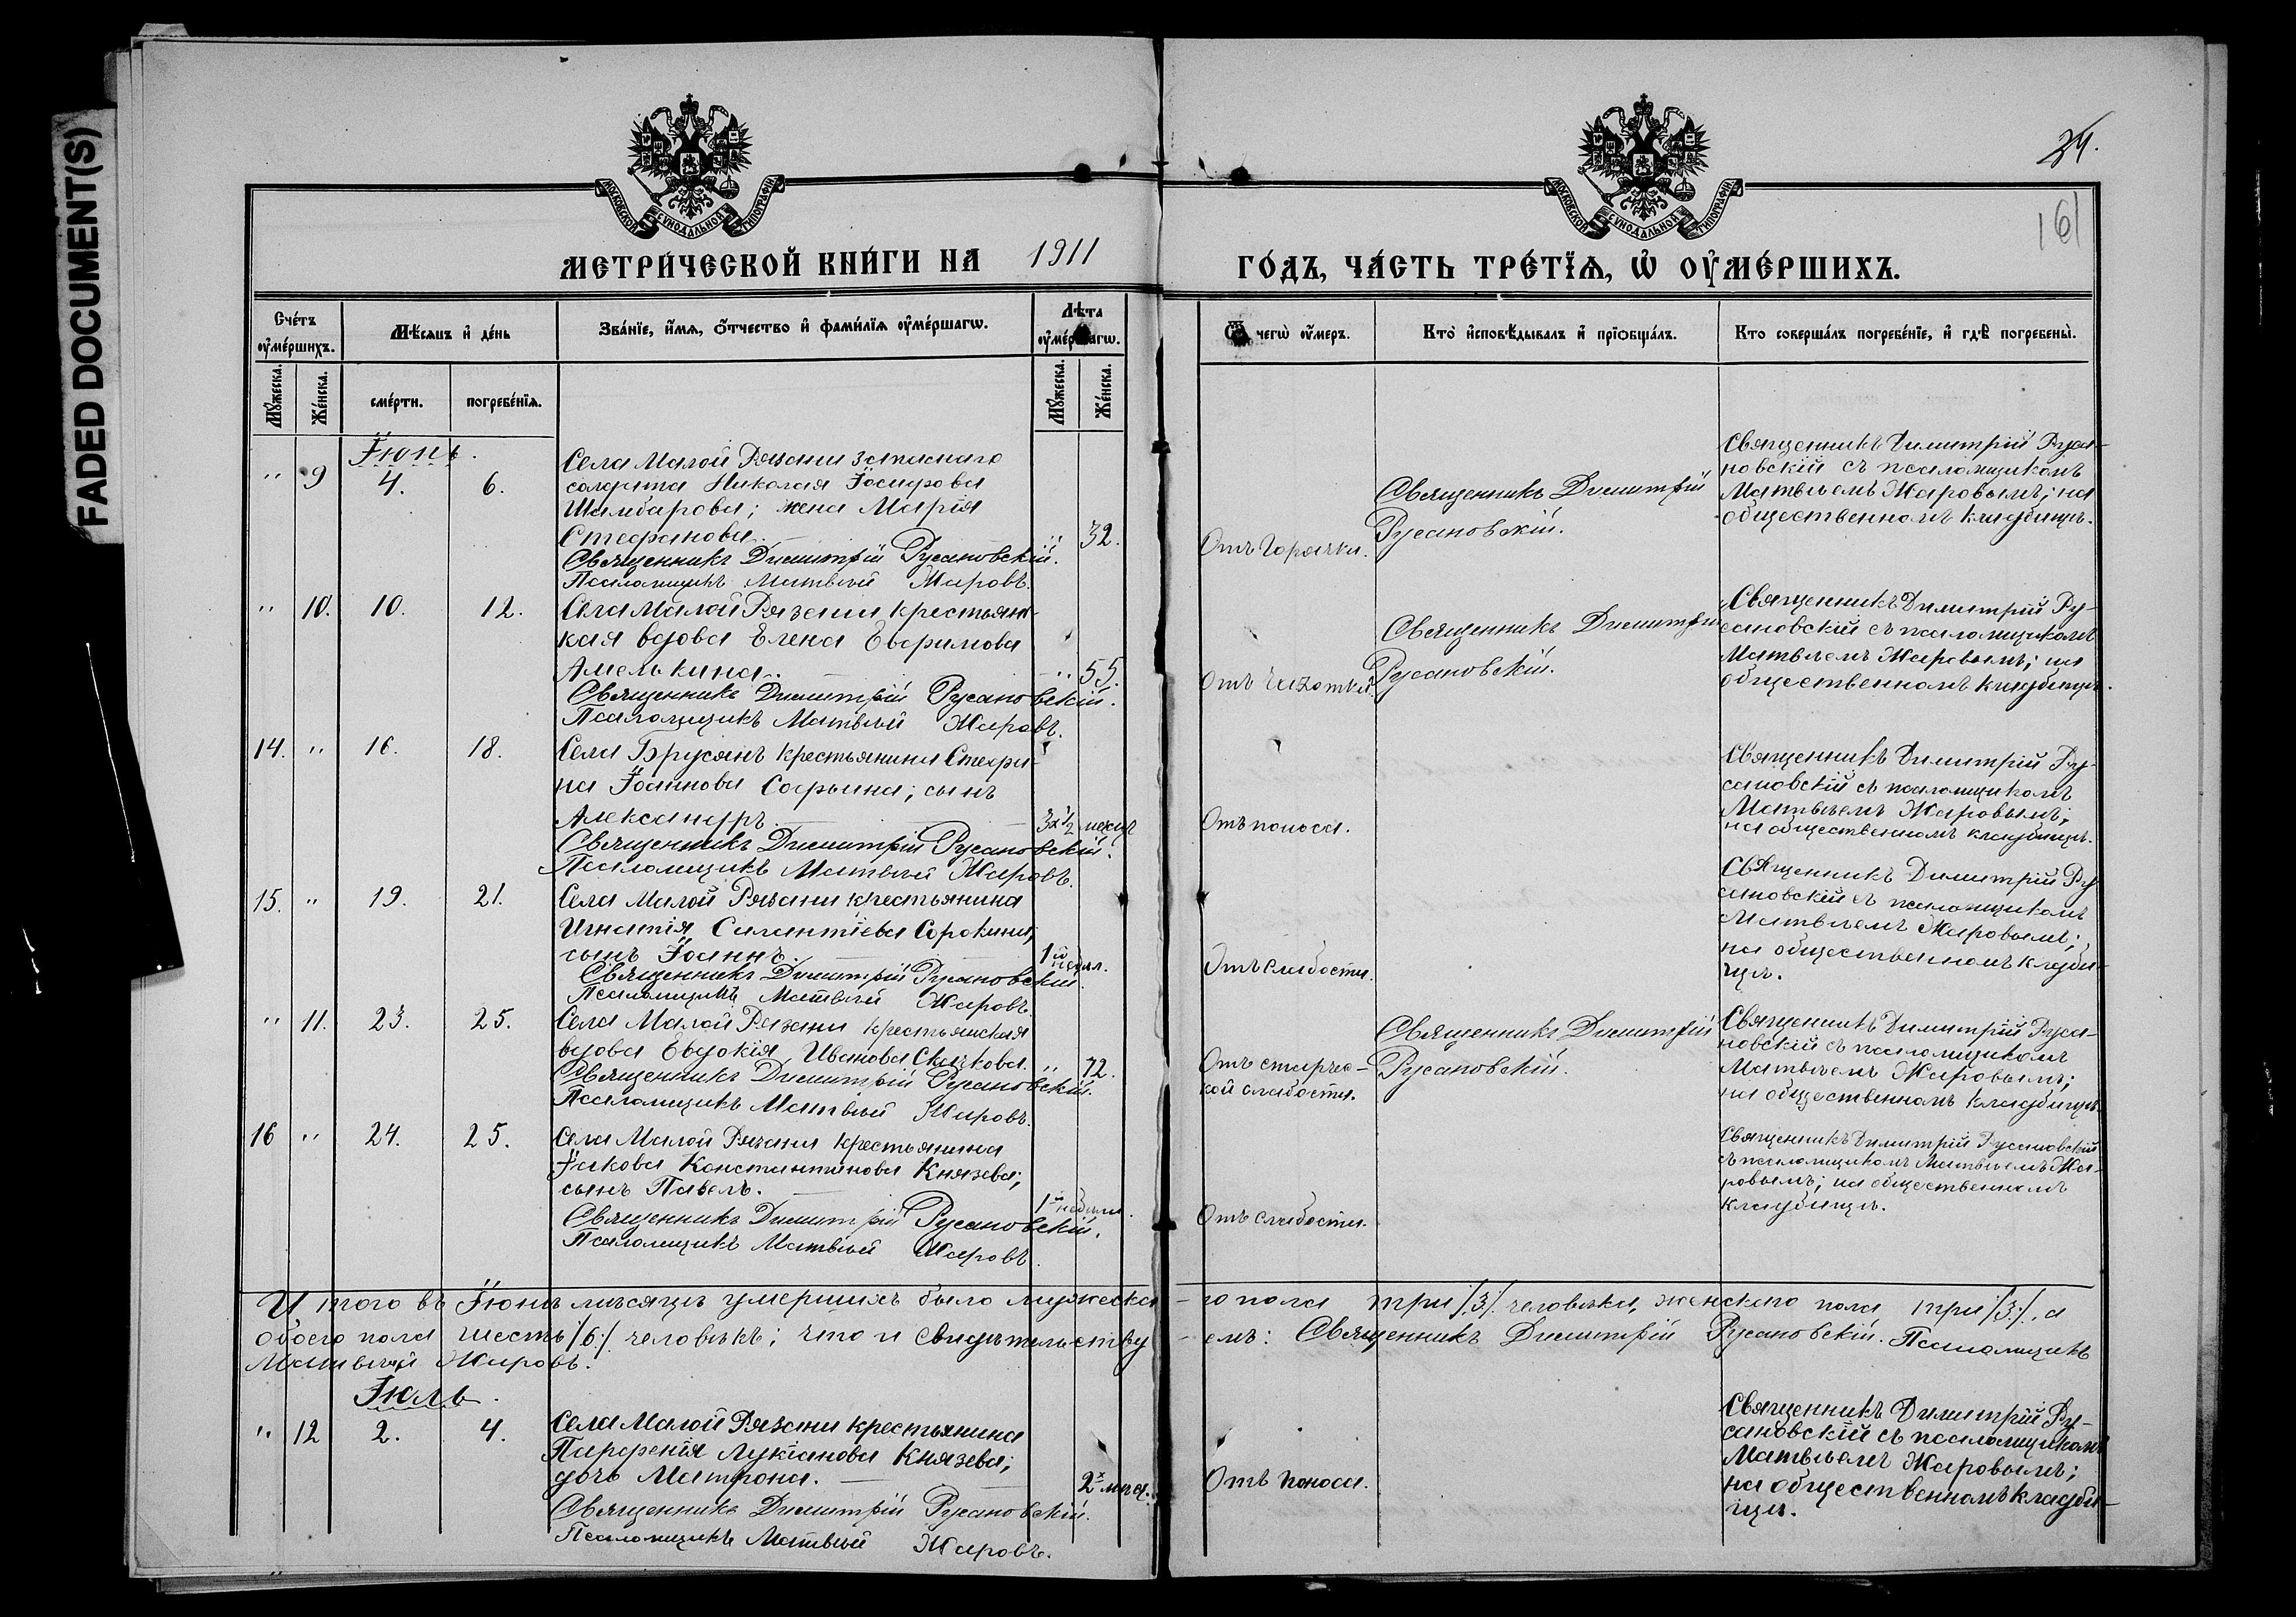 FADED DOCUMENT(S)
МОСКОВСКОЙ СѴНОДАЛЬНОЙ ТИПОГРАФІИ
МОСКОВСКОЙ СѴНОДАЛЬНОЙ ТИПОГРАФІИ
161
МЕТРИ́ЧЕСКОЙ КНИ́ГИ НА 1911 ГО́ДЪ, ЧА́СТЬ ТРЕ́ТЇѦ, Ѡ҆ ОУ҆МЕ́РШИХЪ.
Сче́тъ оу҆ме́ршихъ.
Мѣ́сяцъ и҆ де́нь
Зва́нїе, и҆́мѧ, ѻ҆́тчество и҆ фами́лїѧ оу҆ме́ршагѡ.
Лѣ́та оу҆ме́ршагѡ.
Ѿ чегѡ̀ оу҆́меръ.
Кто̀ и҆сповѣ́дывалъ и҆ прїѡбща́лъ.
Кто соверша́лъ погребе́нїе, и҆ гдѣ̀ погребены̀.
Му́жеска.
Же́нска.
сме́рти.
погребе́нїѧ.
Му́жеска.
Же́нска.
Іюнь.
" 9 4. 6.
Села Малой Рязани запаснаго
солдата Николая Іосифова
Шамбарова; жена Марія
Стефанова. " 32.
Священникъ Димитрій Русановскій.
Псаломщикъ Матвѣй Жаровъ.
Отъ горячки.
Священникъ Димитрій
Русановскій.
Священникъ Димитрій Руса-
новскій съ псаломщикомъ
Матвѣемъ Жаровымъ; на
общественномъ кладбищѣ.
" 10. 10. 12.
Села Малой Рязани крестьянс-
кая вдова Елена Евфимова
Амелькина. " 55.
Священникъ Димитрій Русановскій.
Псаломщикъ Матвѣй Жаровъ.
Отъ чахотки.
Священникъ Димитрій
Русановскій.
Священникъ Димитрій Ру-
сановскій съ псаломщикомъ
Матвѣемъ Жаровымъ; на
общественномъ кладбищѣ.
14. " 16. 18.
Села Брусянъ крестьянина Стефа-
на Іоаннова Софьина; сынъ
Александръ. 3х ½ мѣсяц
Священникъ Димитрій Русановскій.
Псаломщикъ Матвѣй Жаровъ.
Отъ поноса.
Священникъ Димитрій Ру-
сановскій съ псаломщикомъ
Матвѣемъ Жаровымъ;
на общественномъ кладбищѣ.
15. " 19. 21.
Села Малой Рязани крестьянина
Игнатія Савантіева Сорокина;
сынъ Іоаннъ. 1й недѣл.
Священникъ Димитрій Русановскій.
Псаломщикъ Матвѣй Жаровъ.
Отъ слабости.
Священникъ Димитрій Ру
сановскій съ псаломщикомъ
Матвѣемъ Жаровымъ;
на общественномъ кладби-
щѣ.
" 11. 23. 25.
Села Малой Рязани крестьянская
вдова Евдокія Иванова Скачкова. " 72.
Священникъ Димитрій Русановскій.
Псаломщикъ Матвѣй Жаровъ.
Отъ старчес-
кой слабости.
Священникъ Димитрій
Русановскій.
Священникъ Димитрій Руса-
новскій съ псаломщикомъ
Матвѣемъ Жаровымъ;
на общественномъ кладбищѣ.
16 " 24. 25.
Села Малой Рязани крестьянина
Іакова Константинова Князева;
сынъ Павелъ. 1й недѣли.
Священникъ Димитрій Русановскій.
Псаломщикъ Матвѣй Жаровъ.
Отъ слабости.
Священникъ Димитрій Русановскій
съ псаломщикомъ Матвѣемъ Жа-
ровымъ; на общественномъ
кладбищѣ.
Итого въ Іюнѣ мѣсяцѣ умершихъ было мужеска-го пола три /3/ человѣка, женскаго пола три /3/, а
обоего пола шесть /6/ человѣкъ; что и свидѣтельству-емъ: Священникъ Димитрій Русановскій. Псаломщикъ
Матвѣй Жаровъ.
Іюль.
" 12 2. 4.
Села Малой Рязани крестьянина
Парфенія Лукіанова Князева;
дочь Матрона. 2х мѣся.
Священникъ Димитрій Русановскій.
Псаломщикъ Матвѣй Жаровъ.
Отъ поноса.
Священникъ Димитрій Ру-
сановскій съ псаломщикомъ
Матвѣемъ Жаровымъ;
на общественномъ кладби-
щѣ.